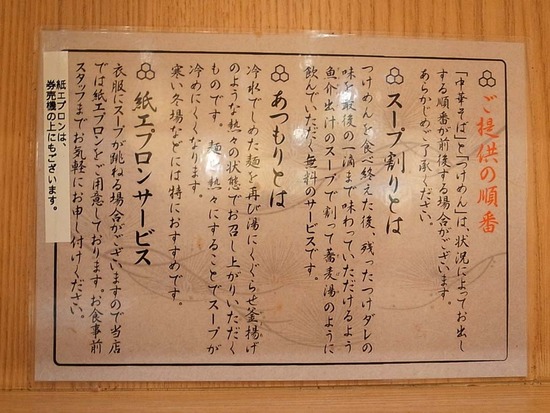 ご提供の順番
「中華そば」と「つけめん」は、状況によってお出し
する順番が前後する場合がございます。
あらかじめご了承ください。
スープ割りとは
つけめんを食べ終えた後、残ったつけダレの
味を最後の一滴まで味わっていただけるよう
魚介出汁のスープで割って蕎麦湯のように
飲んでいただく無料のサービスです。
あつもりとは
冷水でしめた麺を再び湯にくぐらせ釜揚げ
のような熱々の状態でお召し上がりいただく
ものです。麺を熱々にすることでスープが
冷めにくくなります。
寒い冬場などには特におすすめです。
紙エプロンサービス
衣服にスープが跳ねる場合がございますので当店
では紙エプロンをご用意しております。お食事前
スタッフまでお気軽にお申し付けください。
紙エプロンは、
券売機の上にもございます。